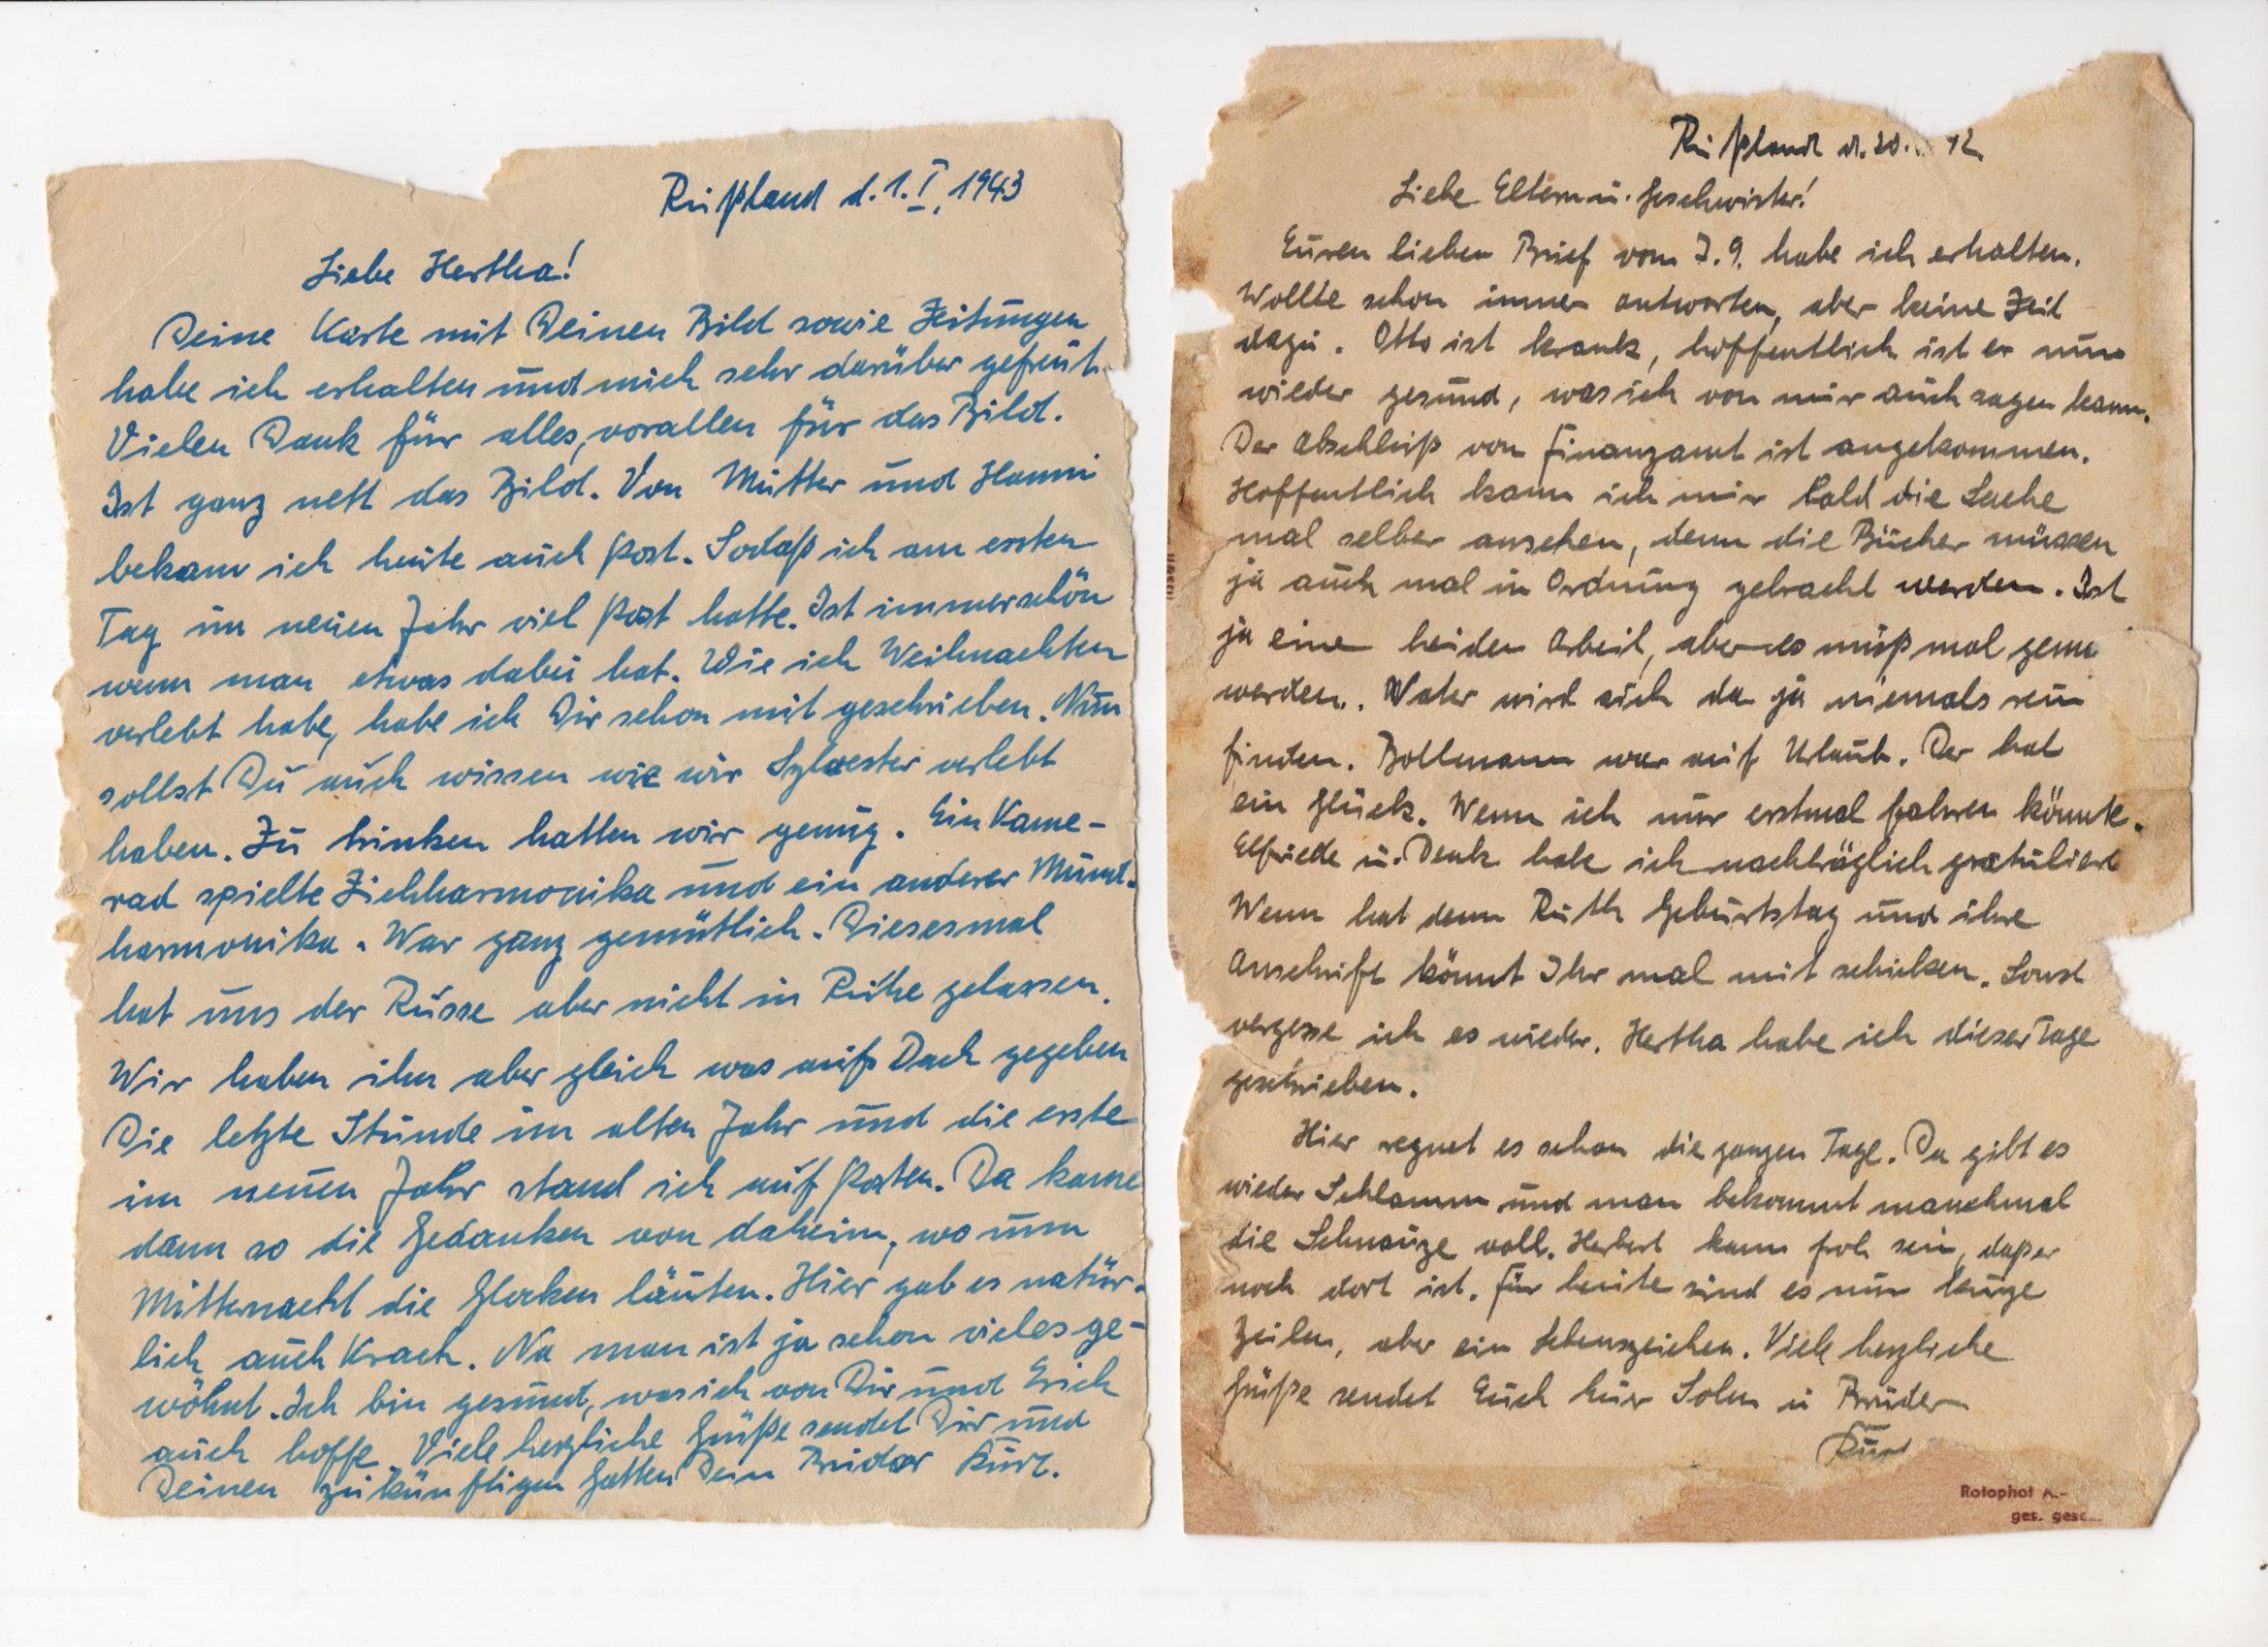 Rußland d. 1. I. 1943
Liebe Hertha!
Deine Karte mit Deinen Bild sowie Zeitungen
habe ich erhalten und mich sehr darüber gefreut.
Vielen Dank für alles, vorallen für das Bild.
Ist ganz nett das Bild. Von Mutter und Hanni
bekam ich heute auch Post. Sodaß ich am ersten
Tag im neuen Jahr viel Post hatte. Ist immer schön
wenn man etwas dabei hat. Wie ich Weihnachten
verlebt habe, habe ich Dir schon mit geschrieben. Nun
sollst Du auch wissen wie wir Sylvester verlebt
haben. Zu trinken hatten wir genug. Ein Kame-
rad spielte Ziehharmonika und ein anderer Mund-
harmonika. War ganz gemütlich. Diesesmal
hat uns der Russe aber nicht in Ruhe gelassen.
Wir haben ihn aber gleich was aufs Dach gegeben
Die letzte Stunde im alten Jahr und die erste
im neuen Jahr stand ich auf Posten. Da kame
dann so die Gedanken von daheim, wo um
Mitternacht die Glocken läuten. Hier gab es natür-
lich auch Krach. Na man ist ja schon vieles ge-
wöhnt. Ich bin gesund, was ich von Dir und Erich
auch hoffe. Viele herzliche Grüße sendet Dir und
Deinen zukünftigen Gatten Dein Bruder Kurt.
Rußland d. 20. 12.
Liebe Eltern u. Geschwister!
Euren lieben Brief vom 7.9. habe ich erhalten.
Wollte schon immer antworten, aber keine Zeit
dazu. Otto ist krank, hoffentlich ist er nun
wieder gesund, was ich von mir auch sagen kann.
Der Abschluß von Finanzamt ist angekommen.
Hoffentlich kann ich mir bald die Sache
mal selber ansehen, denn die Bücher müssen
ja auch mal in Ordnung gebracht werden. Ist
ja eine heiden Arbeit, aber es muß mal gem
werden. Vater wird sich da ja niemals rein
finden. Bollmann war auf Urlaub. Der hat
ein Glück. Wenn ich nur erstmal fahren könnte.
Elfriede u. Denk habe ich nachträglich gratuliert
Wenn hat denn Ruth Geburtstag und ihre
Anschrift könnt Ihr mal mit schicken. Sonst
vergesse ich es wieder. Hertha habe ich dieser Tage
geschrieben.
Hier regnet es schon die ganzen Tage. Da gibt es
wieder Schlamm und man bekommt manchmal
die Schnauze voll. Herbert kann froh sein, daß er
noch dort ist. Für heute sind es nur
Zeilen, aber ein Lebenszeichen. Viele herzliche
Grüße sendet Euch Euer Sohn u Bruder
Kurt
Rotophot A.-
ges. gesc